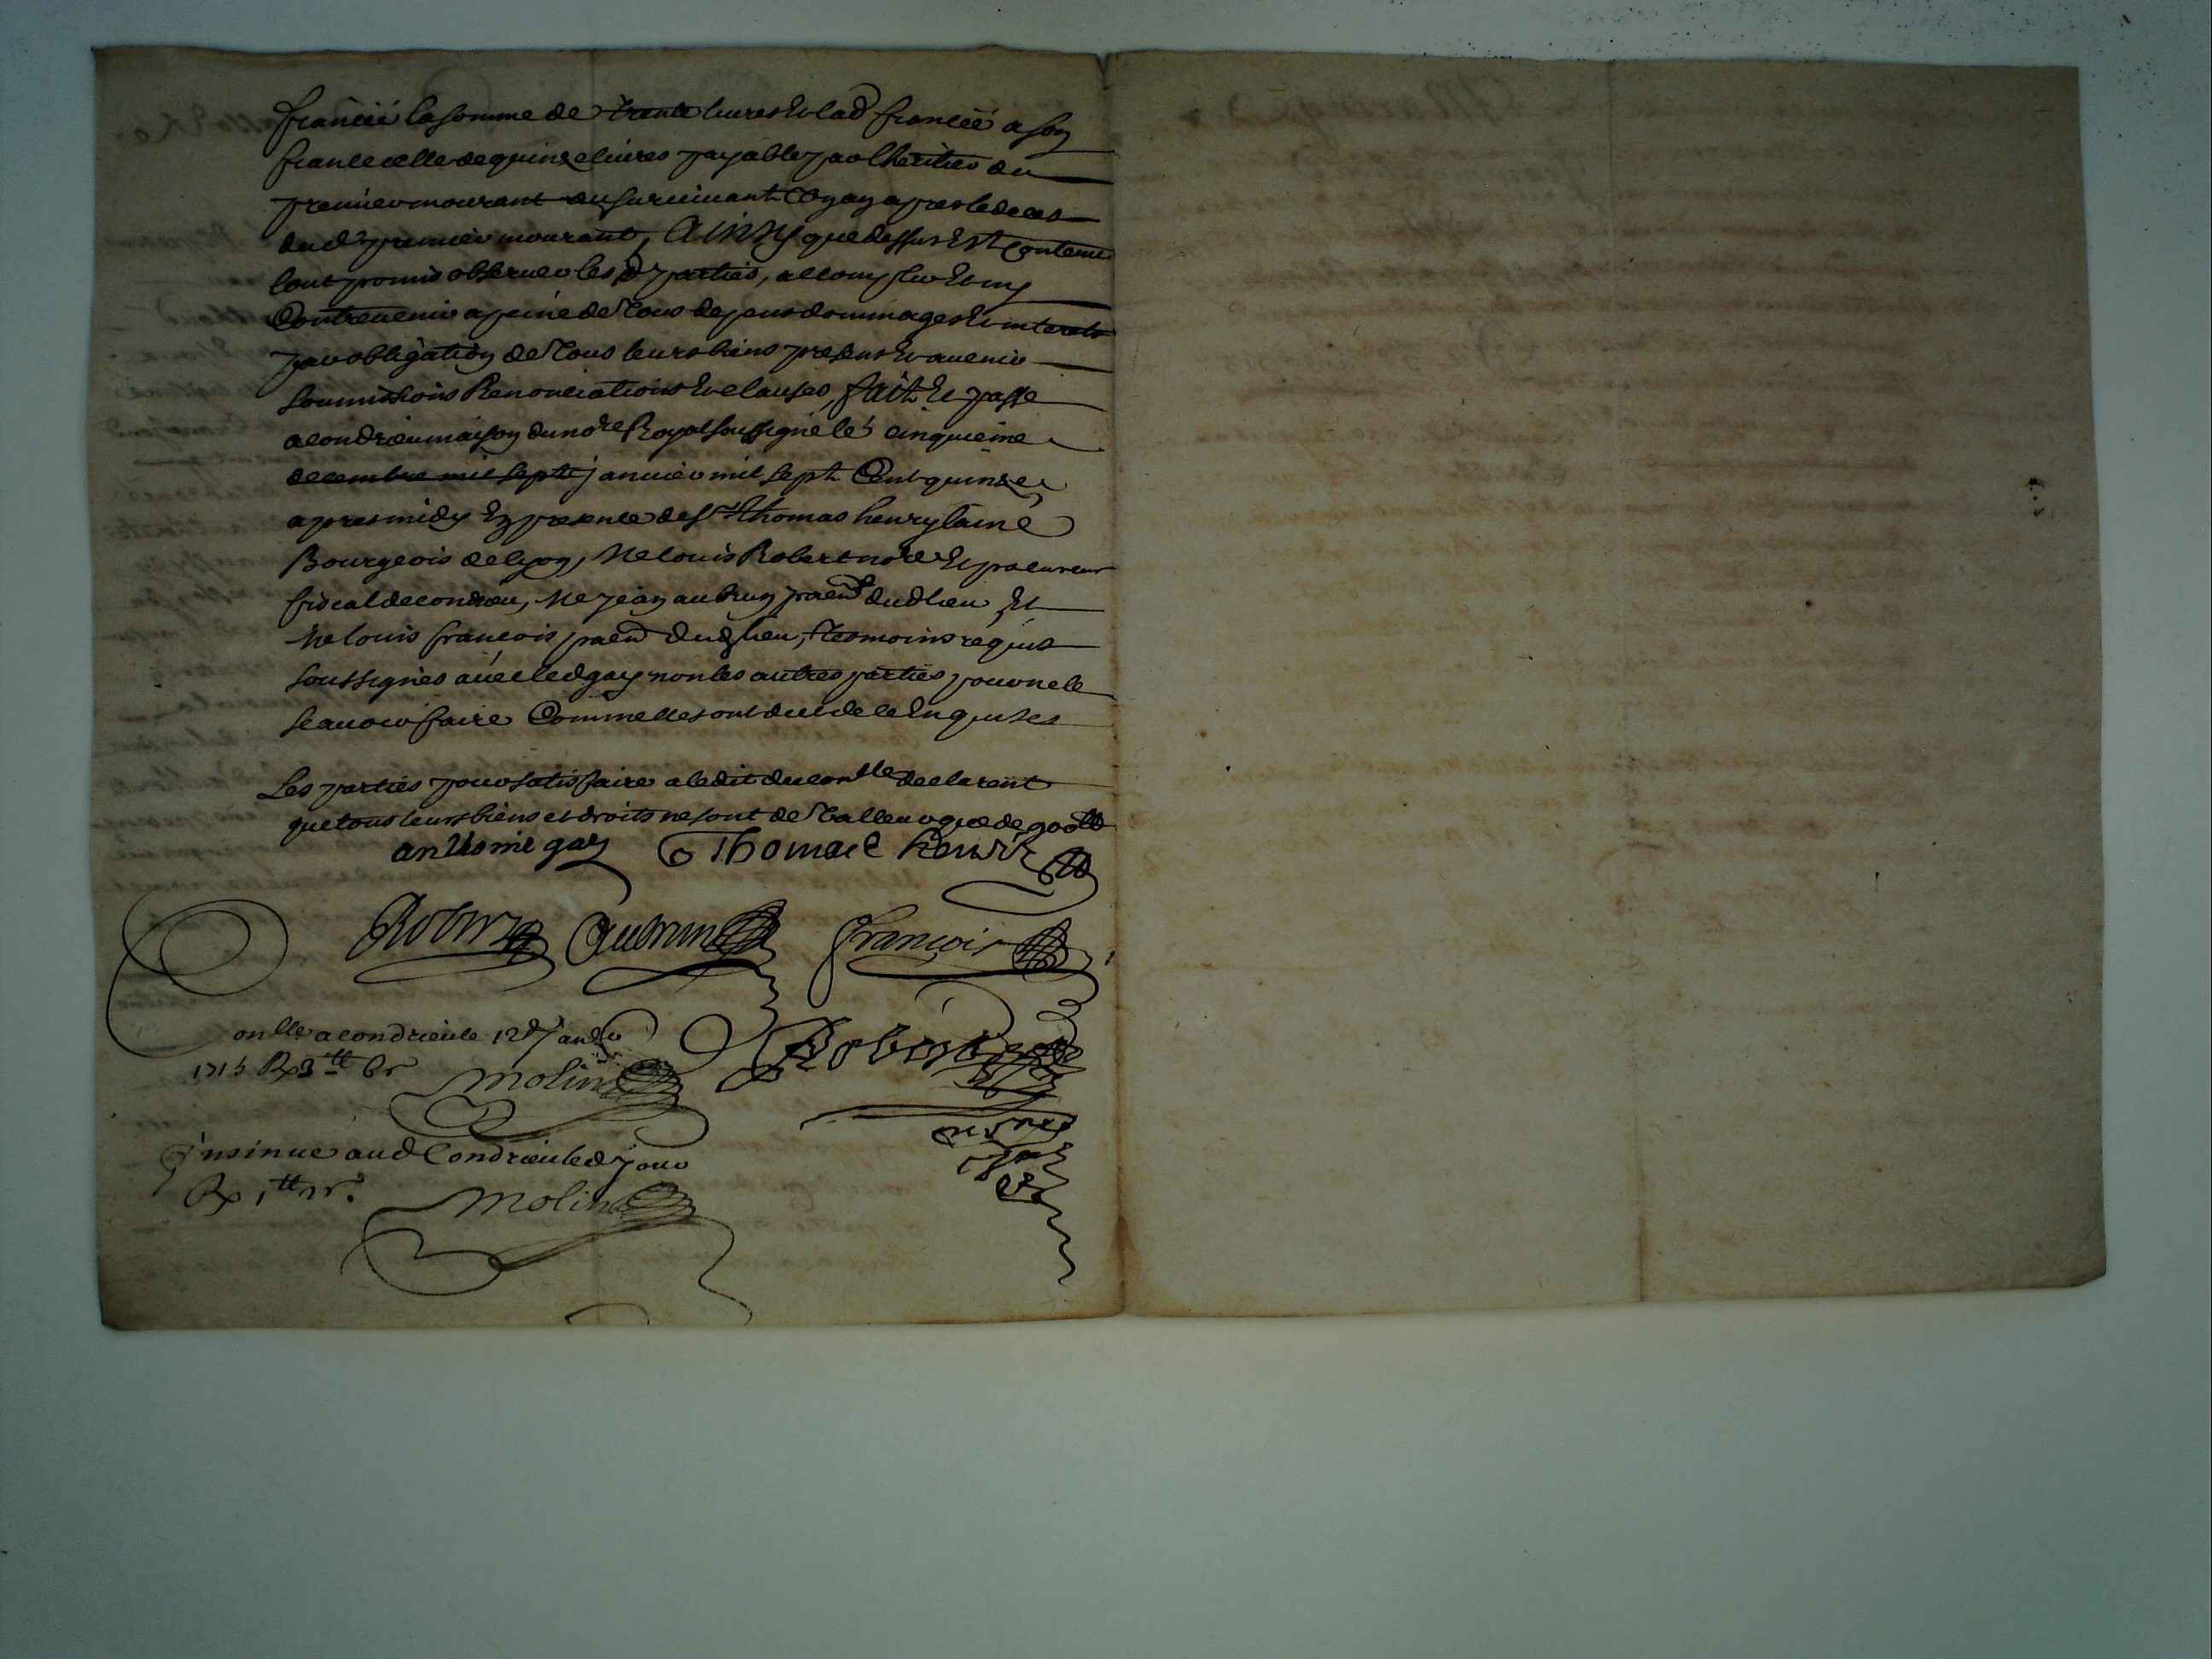 fiancée la somme de trante livres et lad fiancée a son
fiance celle de quinze livres payable par lheritier du
premier mourant au survivant un an apres le deces
dud premier mourant, Ainsy que dessus est contenu
tout promis observer les d parties, accomplir et ny
contrevenir a peine de tous depens dommages et interets
par obligation de tous leurs biens presens et avenir
soumissions Renonciations et clauses, fait et passe
a condrieu maison du nore Royal soussigné le cinquieme
decembre mil septc janvier mil sept cent quinze
apres midy en presence de sr Thomas henry laine
Bourgeois de lyon, Me louis Robert nore et procureur
fiscal de condrieu, Me jean aubrun pracn dud lieu et
Me louis francois pracn dud lieu, tesmoins requis
soussignés avec led gay non les autres parties pour ne le
scavoir faire comme elles ont dit de ce enquises
Les parties pour satisfaire a ledit du conlle declarent
que tous leurs biens et droits ne sont de valleur que de
anthoine gay Thomas henri
Robert Aubrun francois
onlle a condrieu le 12e janvr
1715 Rx 3tt
Molin
Robert
insinue aud Condrieu led jour
Rx 1tt
Molin